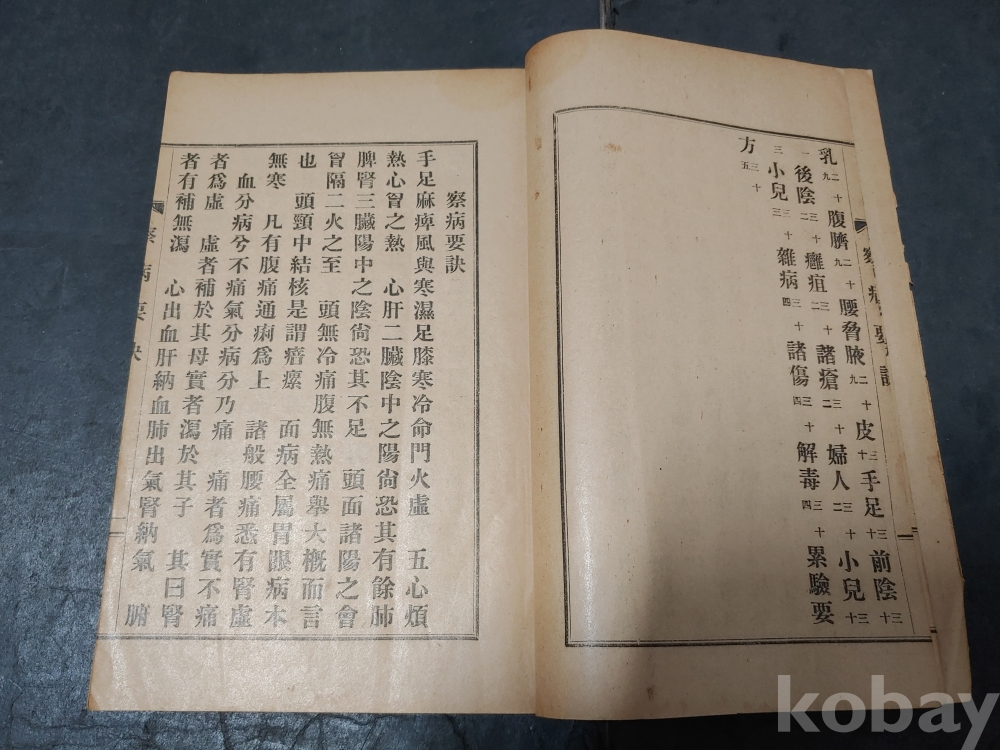 乳二十九 腹臍二十九 腰脅腋二十九 皮三十 手足三十 前陰三十
一 後陰三十二 癰疽三十二 諸瘡三十二 婦人三十二 小兒三十
三 小兒三十三 雜病三十四 諸傷三十四 解毒三十四 累驗要
方三十五
察病要訣
手足麻痺風與寒濕足膝寒冷命門火虛 五心煩
熱心胷之熱 心肝二臟陰中之陽尙恐其有餘肺
脾腎三臟陽中之陰尙恐其不足 頭面諸陽之會
胷隔二火之至 頭無冷痛腹無熱痛舉大槪而言
也 頭頸中結核是謂瘖瘰 面病全屬胃眼病本
無寒 凡有腹痛通痢爲上 諸般腰痛悉有腎虛
血分病兮不痛氣分病分乃痛 痛者爲實不痛
者爲虛 虛者補於其母實者瀉於其子 其曰腎
者有補無瀉 心出血肝納血肺出氣腎納氣 腑
察病要訣
kobay